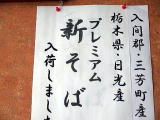 入間郡・三芳町産
栃木県・日光産
プレミアム
新そば
入荷しました